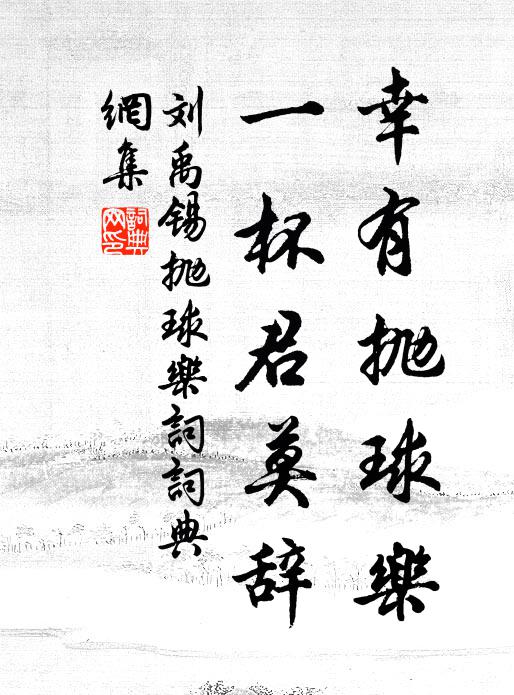 幸有抛球樂
一杯君莫辞
刘禹锡抛球樂詞詞典
網集
詞典網印